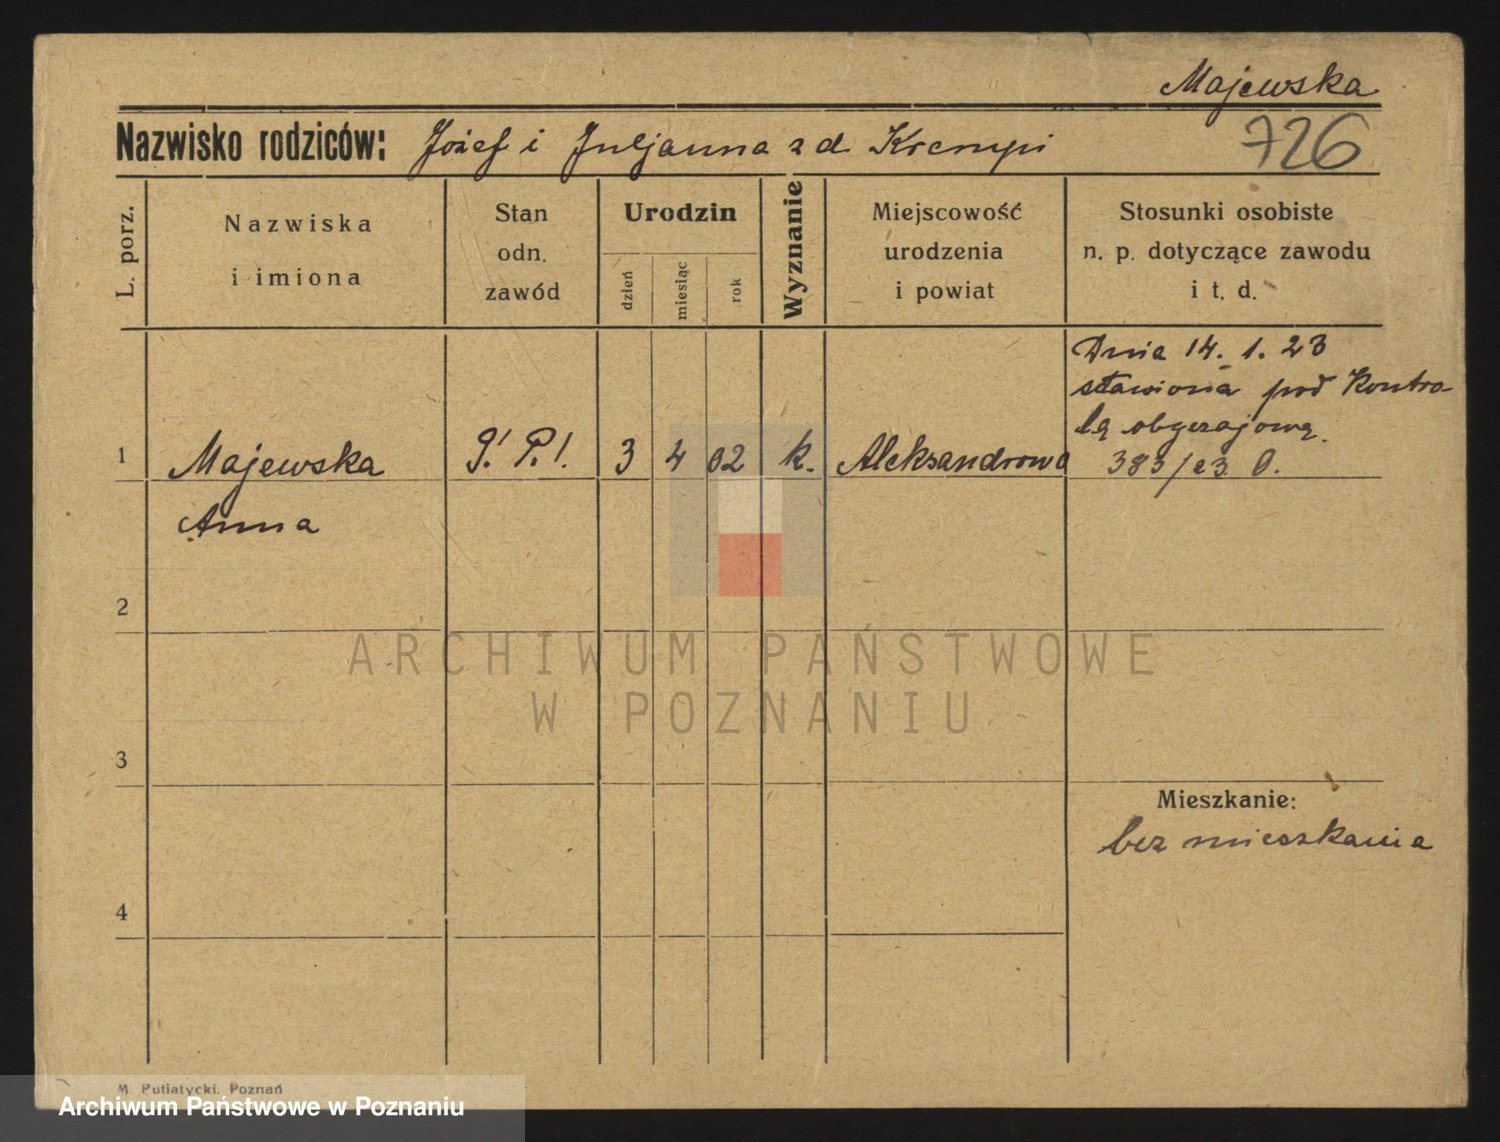 Majewska
Nazwisko rodziców: Józef i Juljanna z d Krempi
726
L. porz.
Nazwiska
i imiona
Stan
odn.
zawód
Urodzin
dzień
miesiąc
rok
Wyznanie
Miejscowość
urodzenia
i powiat
Stosunki osobiste
n. p. dotyczące zawodu
i t. d.
Dnia 14. 1. 23
stawiona pod Kontro-
lą obyczajową.
383/23 O.
1 Majewska 3 4 02 k. Aleksandrowo
Anna
2
3
4
Mieszkanie:
bez mieszkania
ARCHIWUM PAŃSTWOWE
W POZNANIU
M. Putiatycki, Poznań
Archiwum Państwowe w Poznaniu